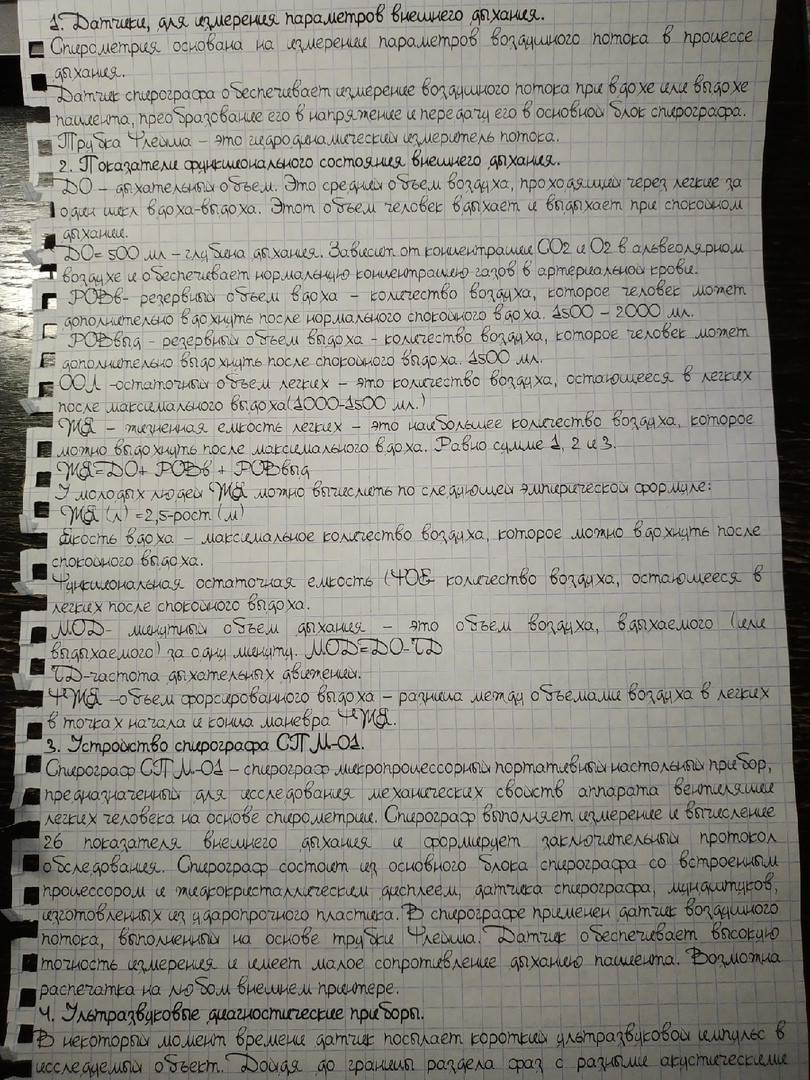 1. Датчики, для измерения параметров внешнего дыхания.
Спирометрия основана на измерении параметров воздушного потока в процессе
дыхания.
Датчик спирографа обеспечивает измерение воздушного потока при вдохе или выдохе
пациента, преобразование его в напряжение и передачу его в основной блок спирографа.
Трубка Флейша – это гидродинамический измеритель потока.
2. Показатели функционального состояния внешнего дыхания.
ДО – дыхательный объем. Это средний объем воздуха, проходящий через легкие за
один цикл вдоха-выдоха. Этот объем человек вдыхает и выдыхает при спокойном
дыхании.
ДО= 500 мл – глубина дыхания. Зависит от концентрации СО2 и О2 в альвеолярном
воздухе и обеспечивает нормальную концентрацию газов в артериальной крови.
РОВв- резервный объем вдоха – количество воздуха, которое человек может
дополнительно вдохнуть после нормального спокойного вдоха. 1500 – 2000 мл.
РОВвыд - резервный объем выдоха - количество воздуха, которое человек может
дополнительно выдохнуть после спокойного выдоха. 1500 мл.
ООЛ -остаточный объем легких – это количество воздуха, остающееся в легких
после максимального выдоха(1000-1500 мл.)
ЖЕЛ – жизненная емкость легких – это наибольшее количество воздуха, которое
можно выдохнуть после максимального вдоха. Равно сумме 1, 2 и 3.
ЖЕЛ=ДО+ РОВв + РОВвыд
У молодых людей ЖЕЛ можно вычислить по следующей эмпирической формуле:
ЖЕЛ (л) =2,5-рост (м)
Емкость вдоха – максимальное количество воздуха, которое можно вдохнуть после
спокойного выдоха.
Функциональная остаточная емкость (ФОЕ- количество воздуха, остающееся в
легких после спокойного выдоха.
МОД- минутный объем дыхания – это объем воздуха, вдыхаемого (или
выдыхаемого) за одну минуту. МОД=ДО-ЧД
ЧД-частота дыхательных движений.
ФЖЕЛ –объем форсированного выдоха – разница между объемами воздуха в легких
в точках начала и конца маневра ФЖЕЛ.
3. Устройство спирографа СПМ-01.
Спирограф СПМ-01 – спирограф микропроцессорный портативный настольный прибор,
предназначенный для исследования механических свойств аппарата вентиляции
легких человека на основе спирометрии. Спирограф выполняет измерение и вычисление
26 показателя внешнего дыхания и формирует заключительный протокол
обследования. Спирограф состоит из основного блока спирографа со встроенным
процессором и жидкокристаллическим дисплеем, датчика спирографа, мундштуков,
изготовленных из ударопрочного пластика. В спирографе применен датчик воздушного
потока, выполненный на основе трубки Флейша. Датчик обеспечивает высокую
точность измерения и имеет малое сопротивление дыханию пациента. Возможна
распечатка на любом внешнем принтере.
4. Ультразвуковые диагностические приборы.
В некоторый момент времени датчик посылает короткий ультразвуковой импульс в
исследуемый объект. Дойдя до границы раздела фаз с разными акустическими